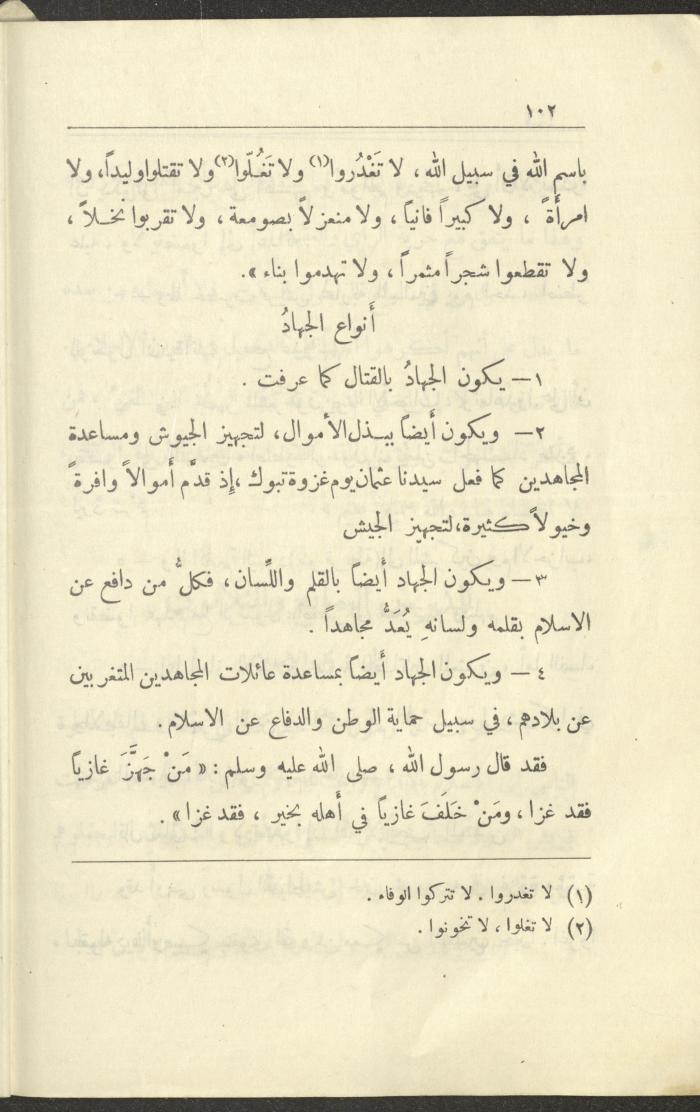 ١٠٢
باسم الله في سبيل الله ، لا تَغْدُروا(١) ولا تَغُلّوا(٢) ولا تقتلوا وليداً، ولا
امرأةً ، ولا كبيراً فانياً ، ولا منعزلاً بصومعة ، ولا تقربوا نخلاً ،
ولا تقطعوا شجراً مثمراً ، ولا تهدموا بناء » .
أنواع الجهادُ
١ – يكون الجهادُ بالقتال كما عرفت .
٢ – ويكون أيضاً ببذل الأموال ، لتجهيز الجيوش ومساعدة
المجاهدين كما فعل سيدنا عثمان يوم غزوة تبوك ، إذ قدَّم أموالاً وافرةً
وخيولاً كثيرة، لتجهيز الجيش
٣ – ويكون الجهاد أيضاً بالقلم واللِّسان ، فكلُّ من دافع عن
الاسلام بقلمه ولسانهِ يُعَدُّ مجاهداً .
٤ – ويكون الجهاد أيضاً بمساعدة عائلات المجاهدين المتغربين
عن بلادهم ، في سبيل حماية الوطن والدفاع عن الاسلام .
فقد قال رسول الله ، صلى الله عليه وسلم : « مَنْ جَهَّزَ غازياً
فقد غزا ، ومَنْ خَلَفَ غازياً في أهله بخير ، فقد غزا » .
(١) لا تغدروا . لا تتركوا الوفاء .
(٢) لا تغلوا ، لا تخونوا .